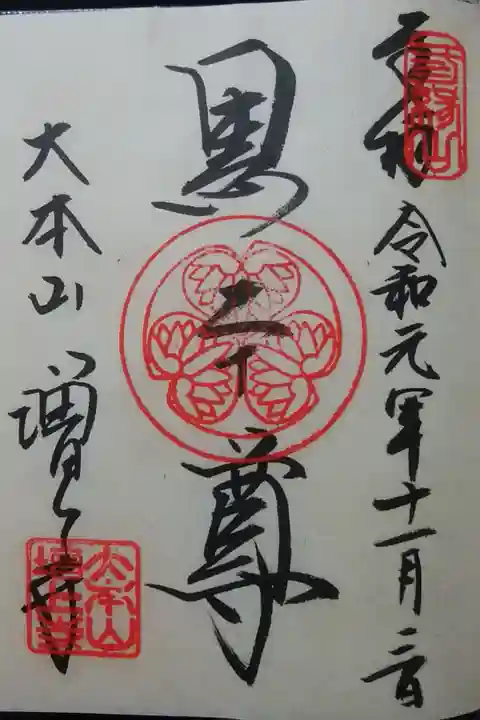 奉拝 令和元年十一月三日
黒本尊
大本山 増上寺
大本山
増上寺